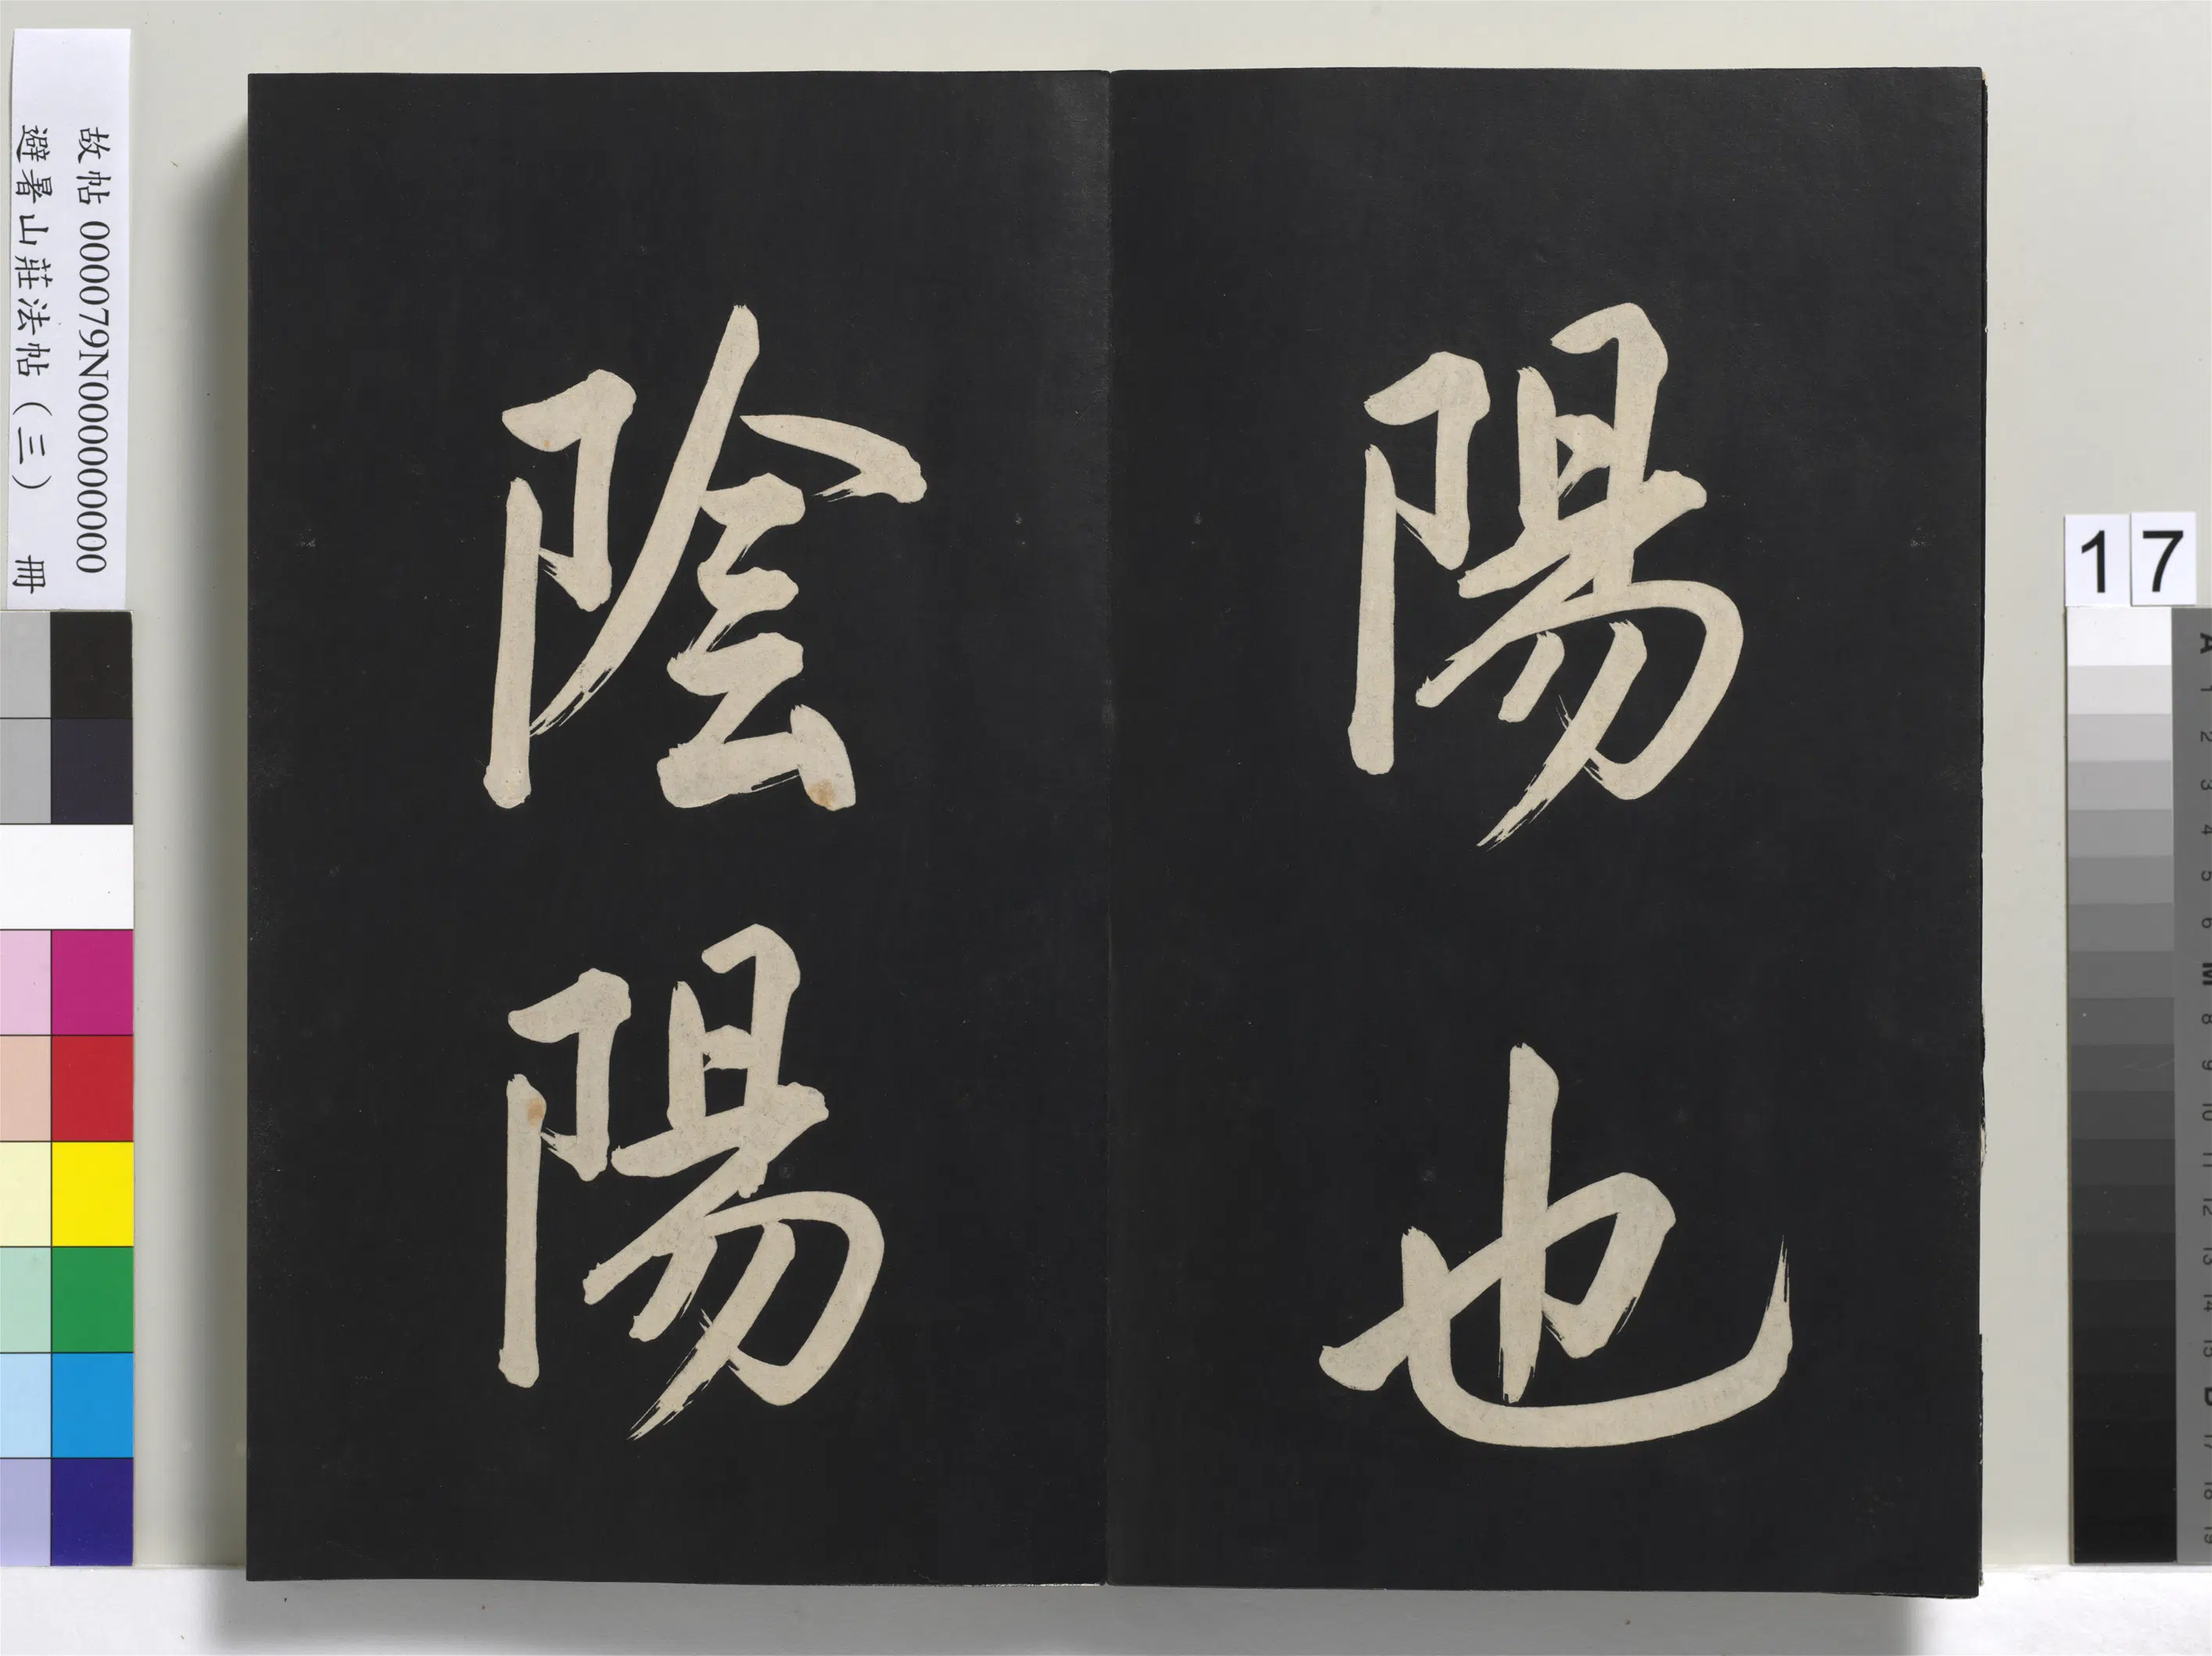 陽也
陰陽
故帖 000079N000000000
避暑山莊法帖（三） 冊
17
A 1 2 3 4 5 6 M 8 9 10 11 12 13 14 15 B 17 18 19